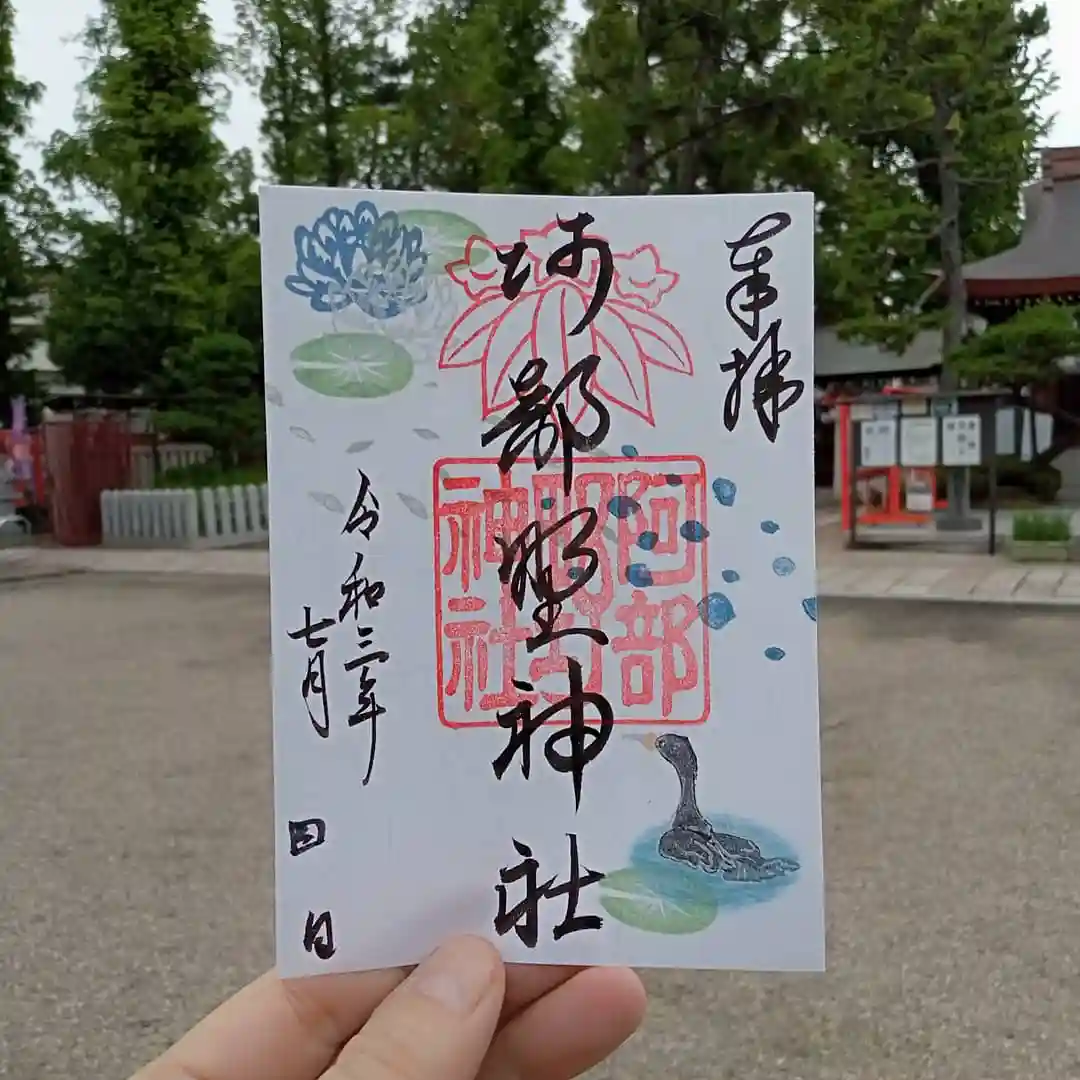 奉拝
阿部野神社
阿部野神社
令和三年
七月
四日